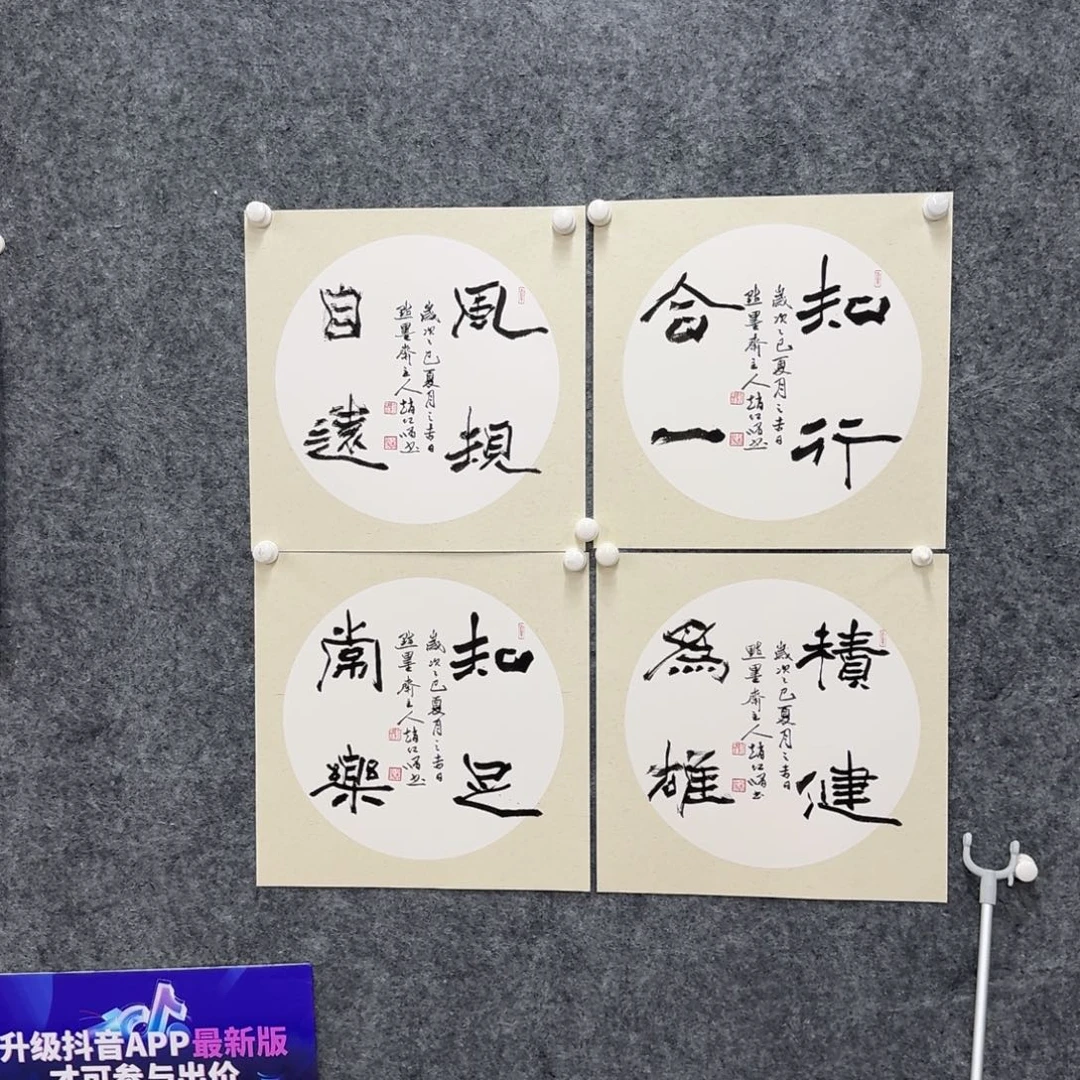 風規
歲次乙巳夏月之吉日
點墨齋主人趙江書
自遠
知行
歲次乙巳夏月之吉日
點墨齋主人趙江書
合一
知足
歲次乙巳夏月之吉日
點墨齋主人趙江書
常樂
積健
歲次乙巳夏月之吉日
點墨齋主人趙江書
為雄
升级抖音APP最新版
才可参与出价